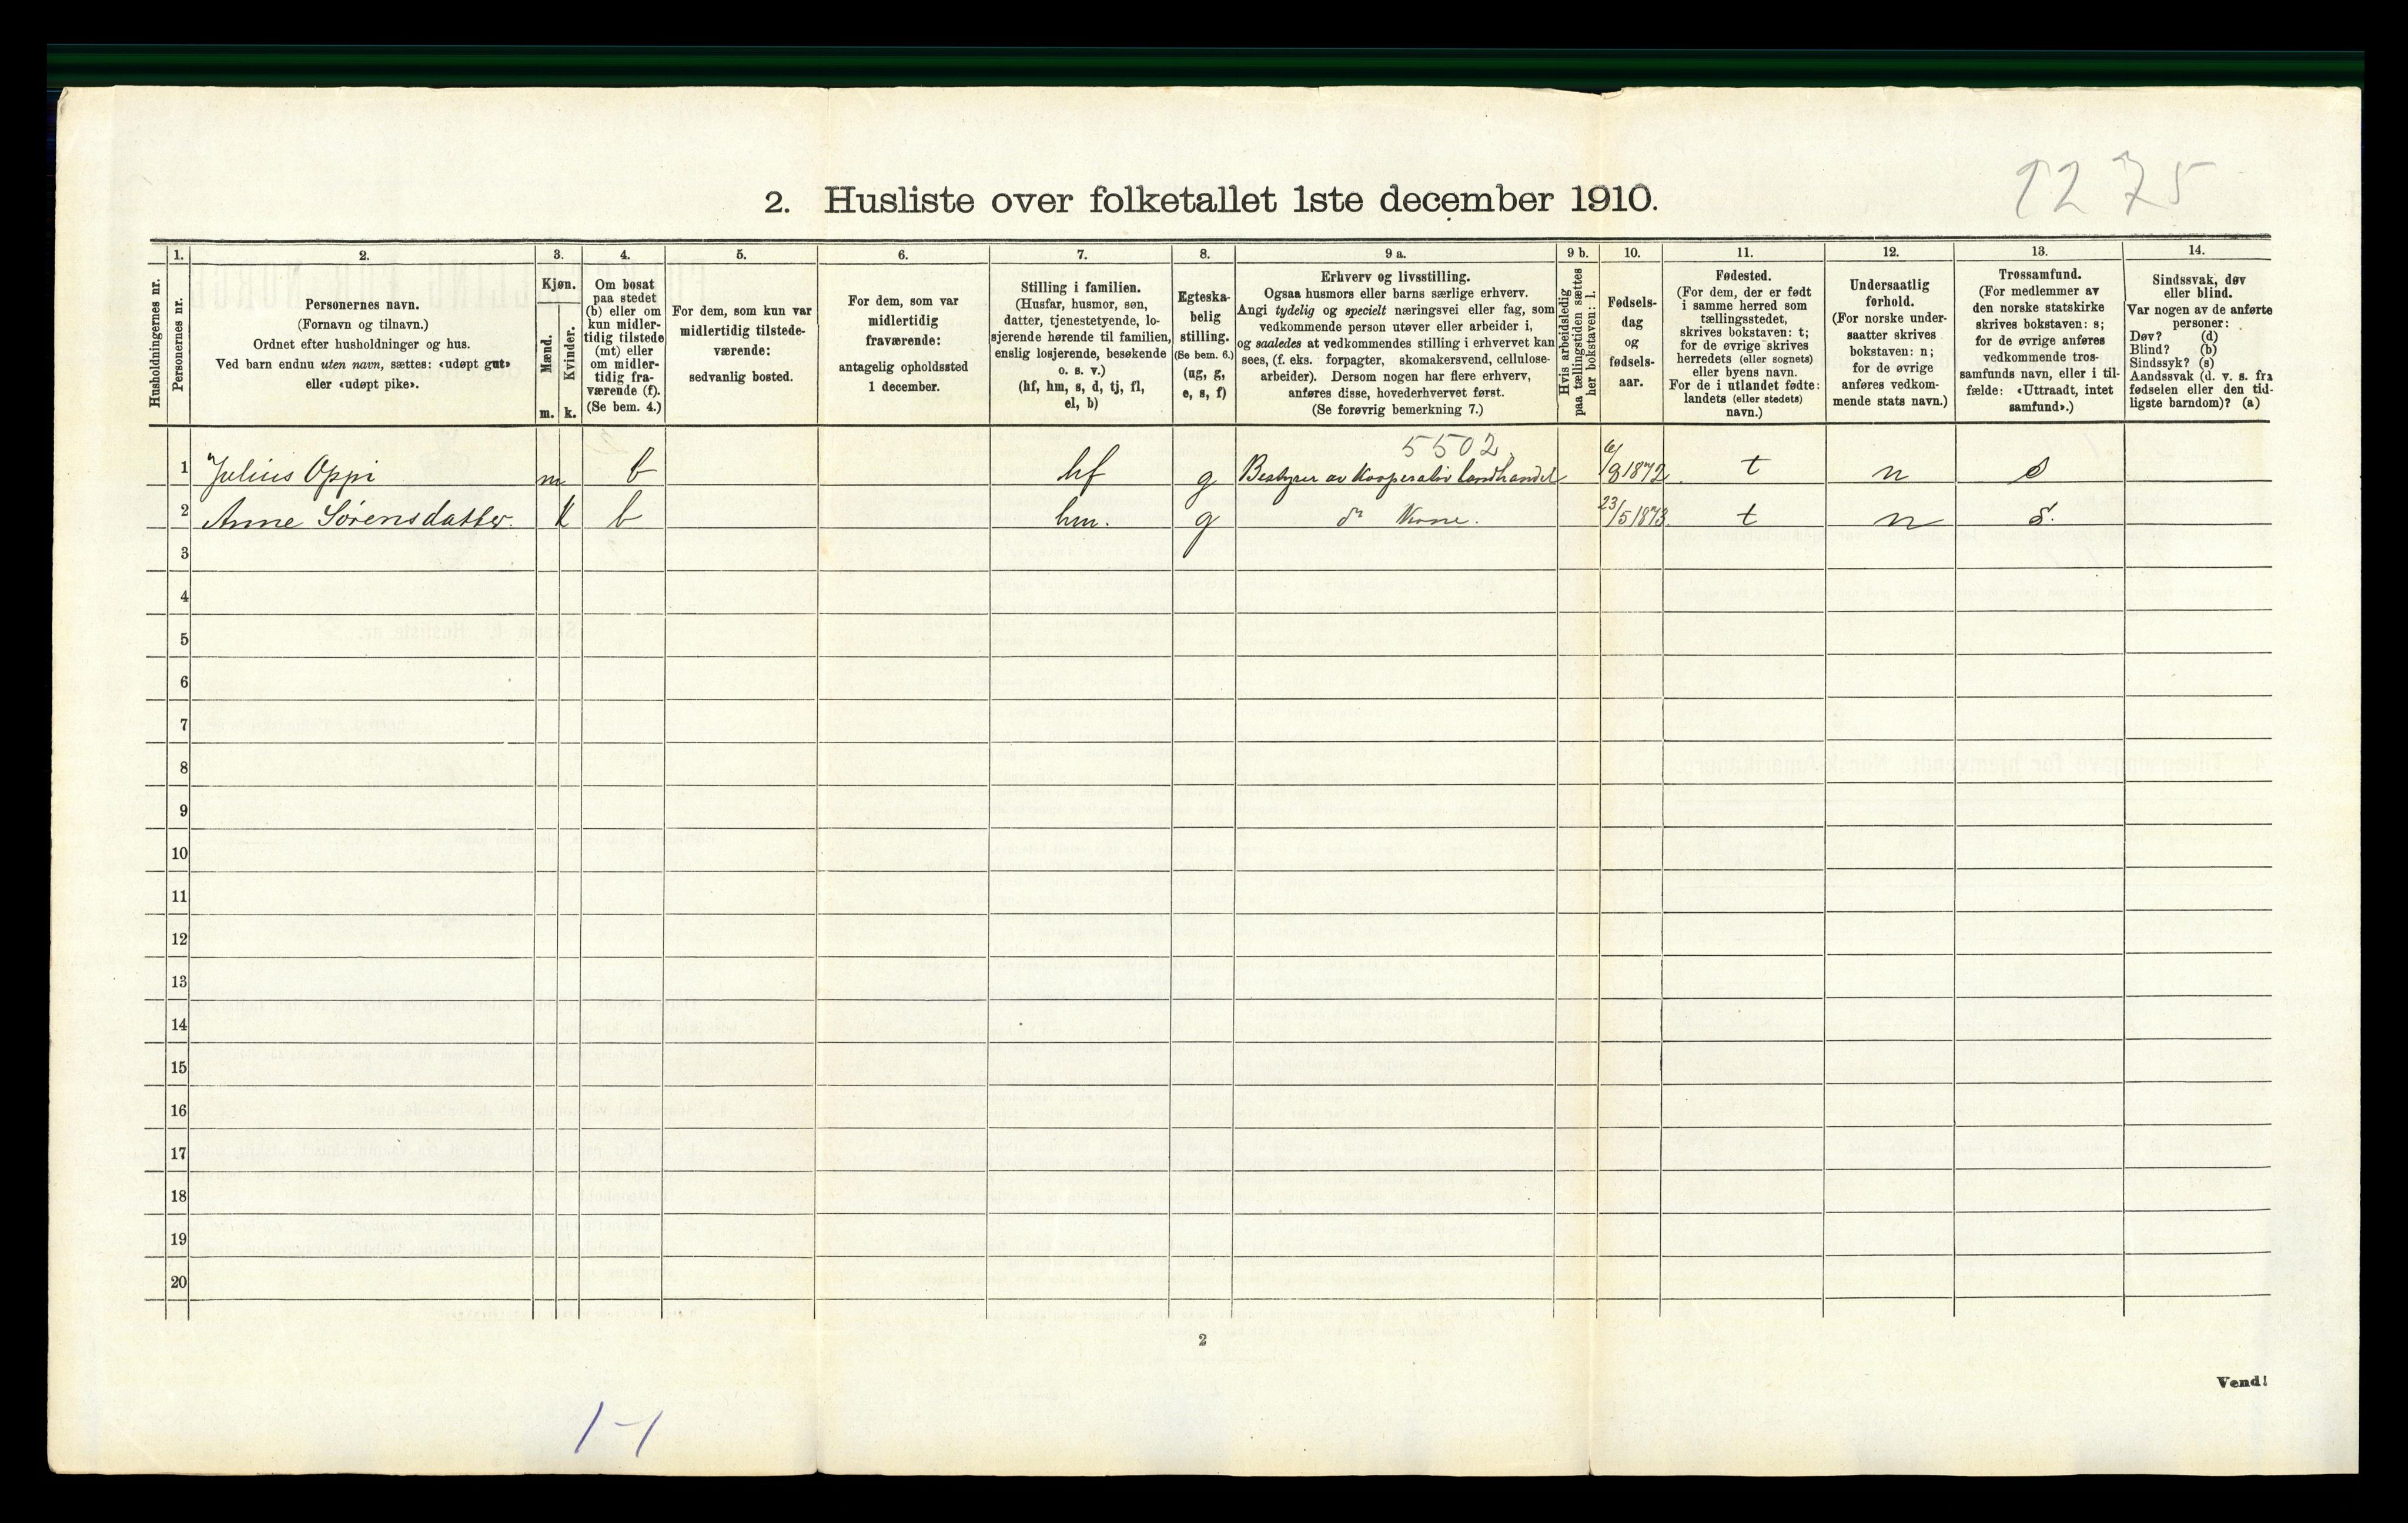 1275
2. Husliste over folketallet 1ste december 1910.
Husholdningernes nr.
1.
Personernes nr.
2.
Personernes navn.
(Fornavn og tilnavn.)
Ordnet efter husholdninger og hus.
Ved barn endnu uten navn, sættes: «udøpt gut»
eller «udøpt pike».
3.
Kjøn.
Mænd.
Kvinder.
m. k.
4.
Om bosat
paa stedet
(b) eller om
kun midler-
tidig tilstede
(mt) eller
om midler-
tidig fra-
værende (f).
(Se bem. 4.)
5.
For dem, som kun var
midlertidig tilstede-
værende:
sedvanlig bosted.
6.
For dem, som var
midlertidig
fraværende:
antagelig opholdssted
1 december.
7.
Stilling i familien.
(Husfar, husmor, søn,
datter, tjenestetyende, lo-
sjerende hørende til familien,
enslig losjerende, besøkende
o. s. v.)
(hf, hm, s, d, tj, fl,
el, b)
8.
Egteska-
belig
stilling.
(Se bem. 6.)
(ug, g,
e, s, f)
9 a.
Erhverv og livsstilling.
Ogsaa husmors eller barns særlige erhverv.
Angi tydelig og specielt næringsvei eller fag, som
vedkommende person utøver eller arbeider i,
og saaledes at vedkommendes stilling i erhvervet kan
sees, (f. eks. forpagter, skomakersvend, cellulose-
arbeider). Dersom nogen har flere erhverv,
anføres disse, hovederhvervet først.
(Se forøvrig bemerkning 7.)
9 b.
Hvis arbeidsledig
paa tællingstiden sættes
her bokstaven: l.
10.
Fødsels-
dag
og
fødsels-
aar.
11.
Fødested.
(For dem, der er født
i samme herred som
tællingsstedet,
skrives bokstaven: t;
for de øvrige skrives
herredets (eller sognets)
eller byens navn.
For de i utlandet fødte:
landets (eller stedets)
navn.)
12.
Undersaatlig
forhold.
(For norske under-
saatter skrives
bokstaven: n;
for de øvrige
anføres vedkom-
mende stats navn.)
13.
Trossamfund.
(For medlemmer av
den norske statskirke
skrives bokstaven: s;
for de øvrige anføres
vedkommende tros-
samfunds navn, eller i til-
fælde: «Uttraadt, intet
samfund».)
14.
Sindssvak, døv
eller blind.
Var nogen av de anførte
personer:
Døv? (d)
Blind? (b)
Sindssyk? (s)
Aandssvak (d. v. s. fra
fødselen eller den tid-
ligste barndom)? (a)
5502
1 Julius Oppi m b hf g Bestyrer av Kooperativ landhandel 6/8 1872 t n s
2 Anne Sørensdatter. k b hm. g do Kone. 23/5 1873. t n s.
3
4
5
6
7
8
9
10
11
12
13
14
15
16
17
18
19
20
2
Vend!
1-1